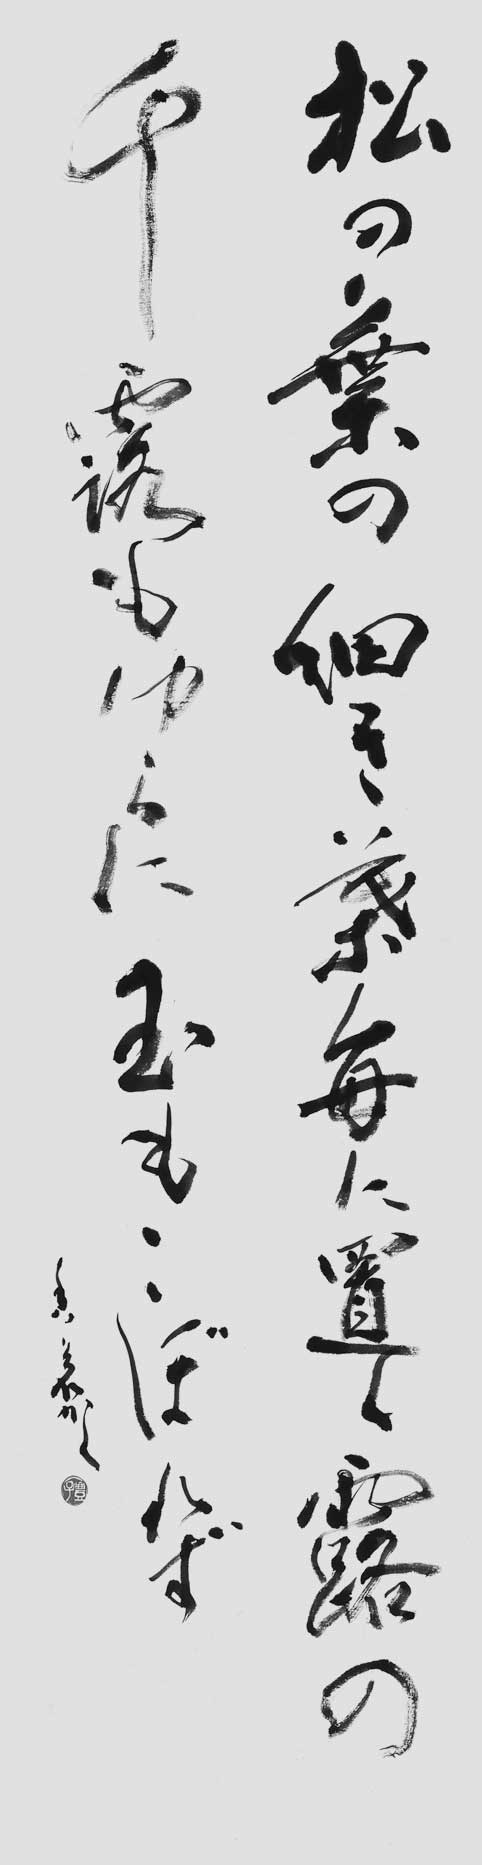 松の葉の細き葉毎に置く露の
千露もゆらに玉もこぼれず